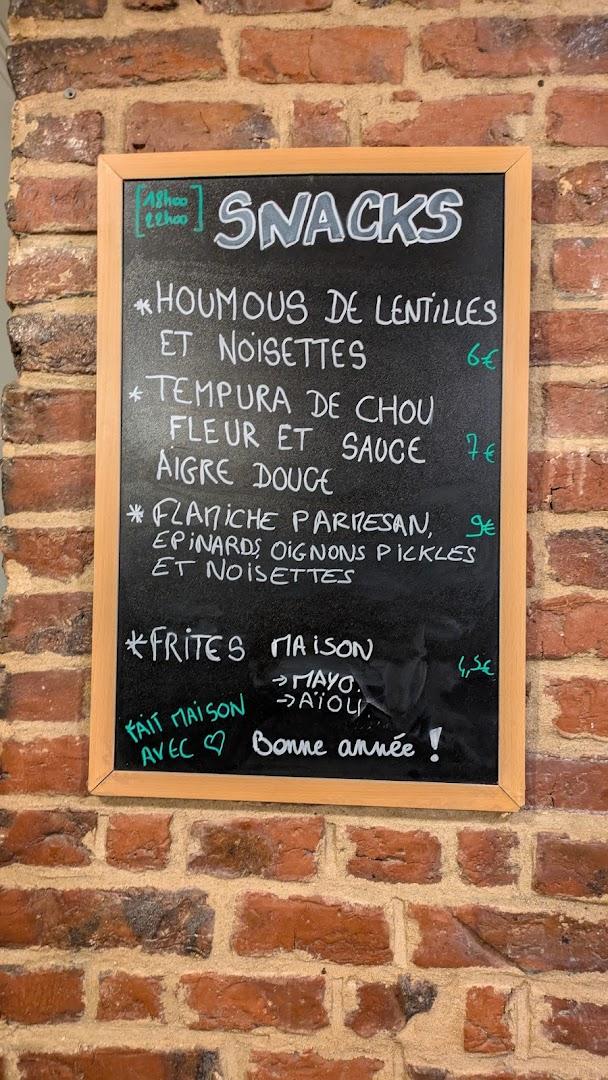 [18h00
22h00]
SNACKS
*HOUMOUS DE LENTILLES
ET NOISETTES 6€
*TEMPURA DE CHOU
FLEUR ET SAUCE 7€
AIGRE DOUCE
*FLAMICHE PARMESAN, 9€
EPINARDS, OIGNONS PICKLES
ET NOISETTES
*FRITES MAISON
4,5€
→MAYO.
→AÏOLI
FAIT MAISON
AVEC ♡
Bonne année !